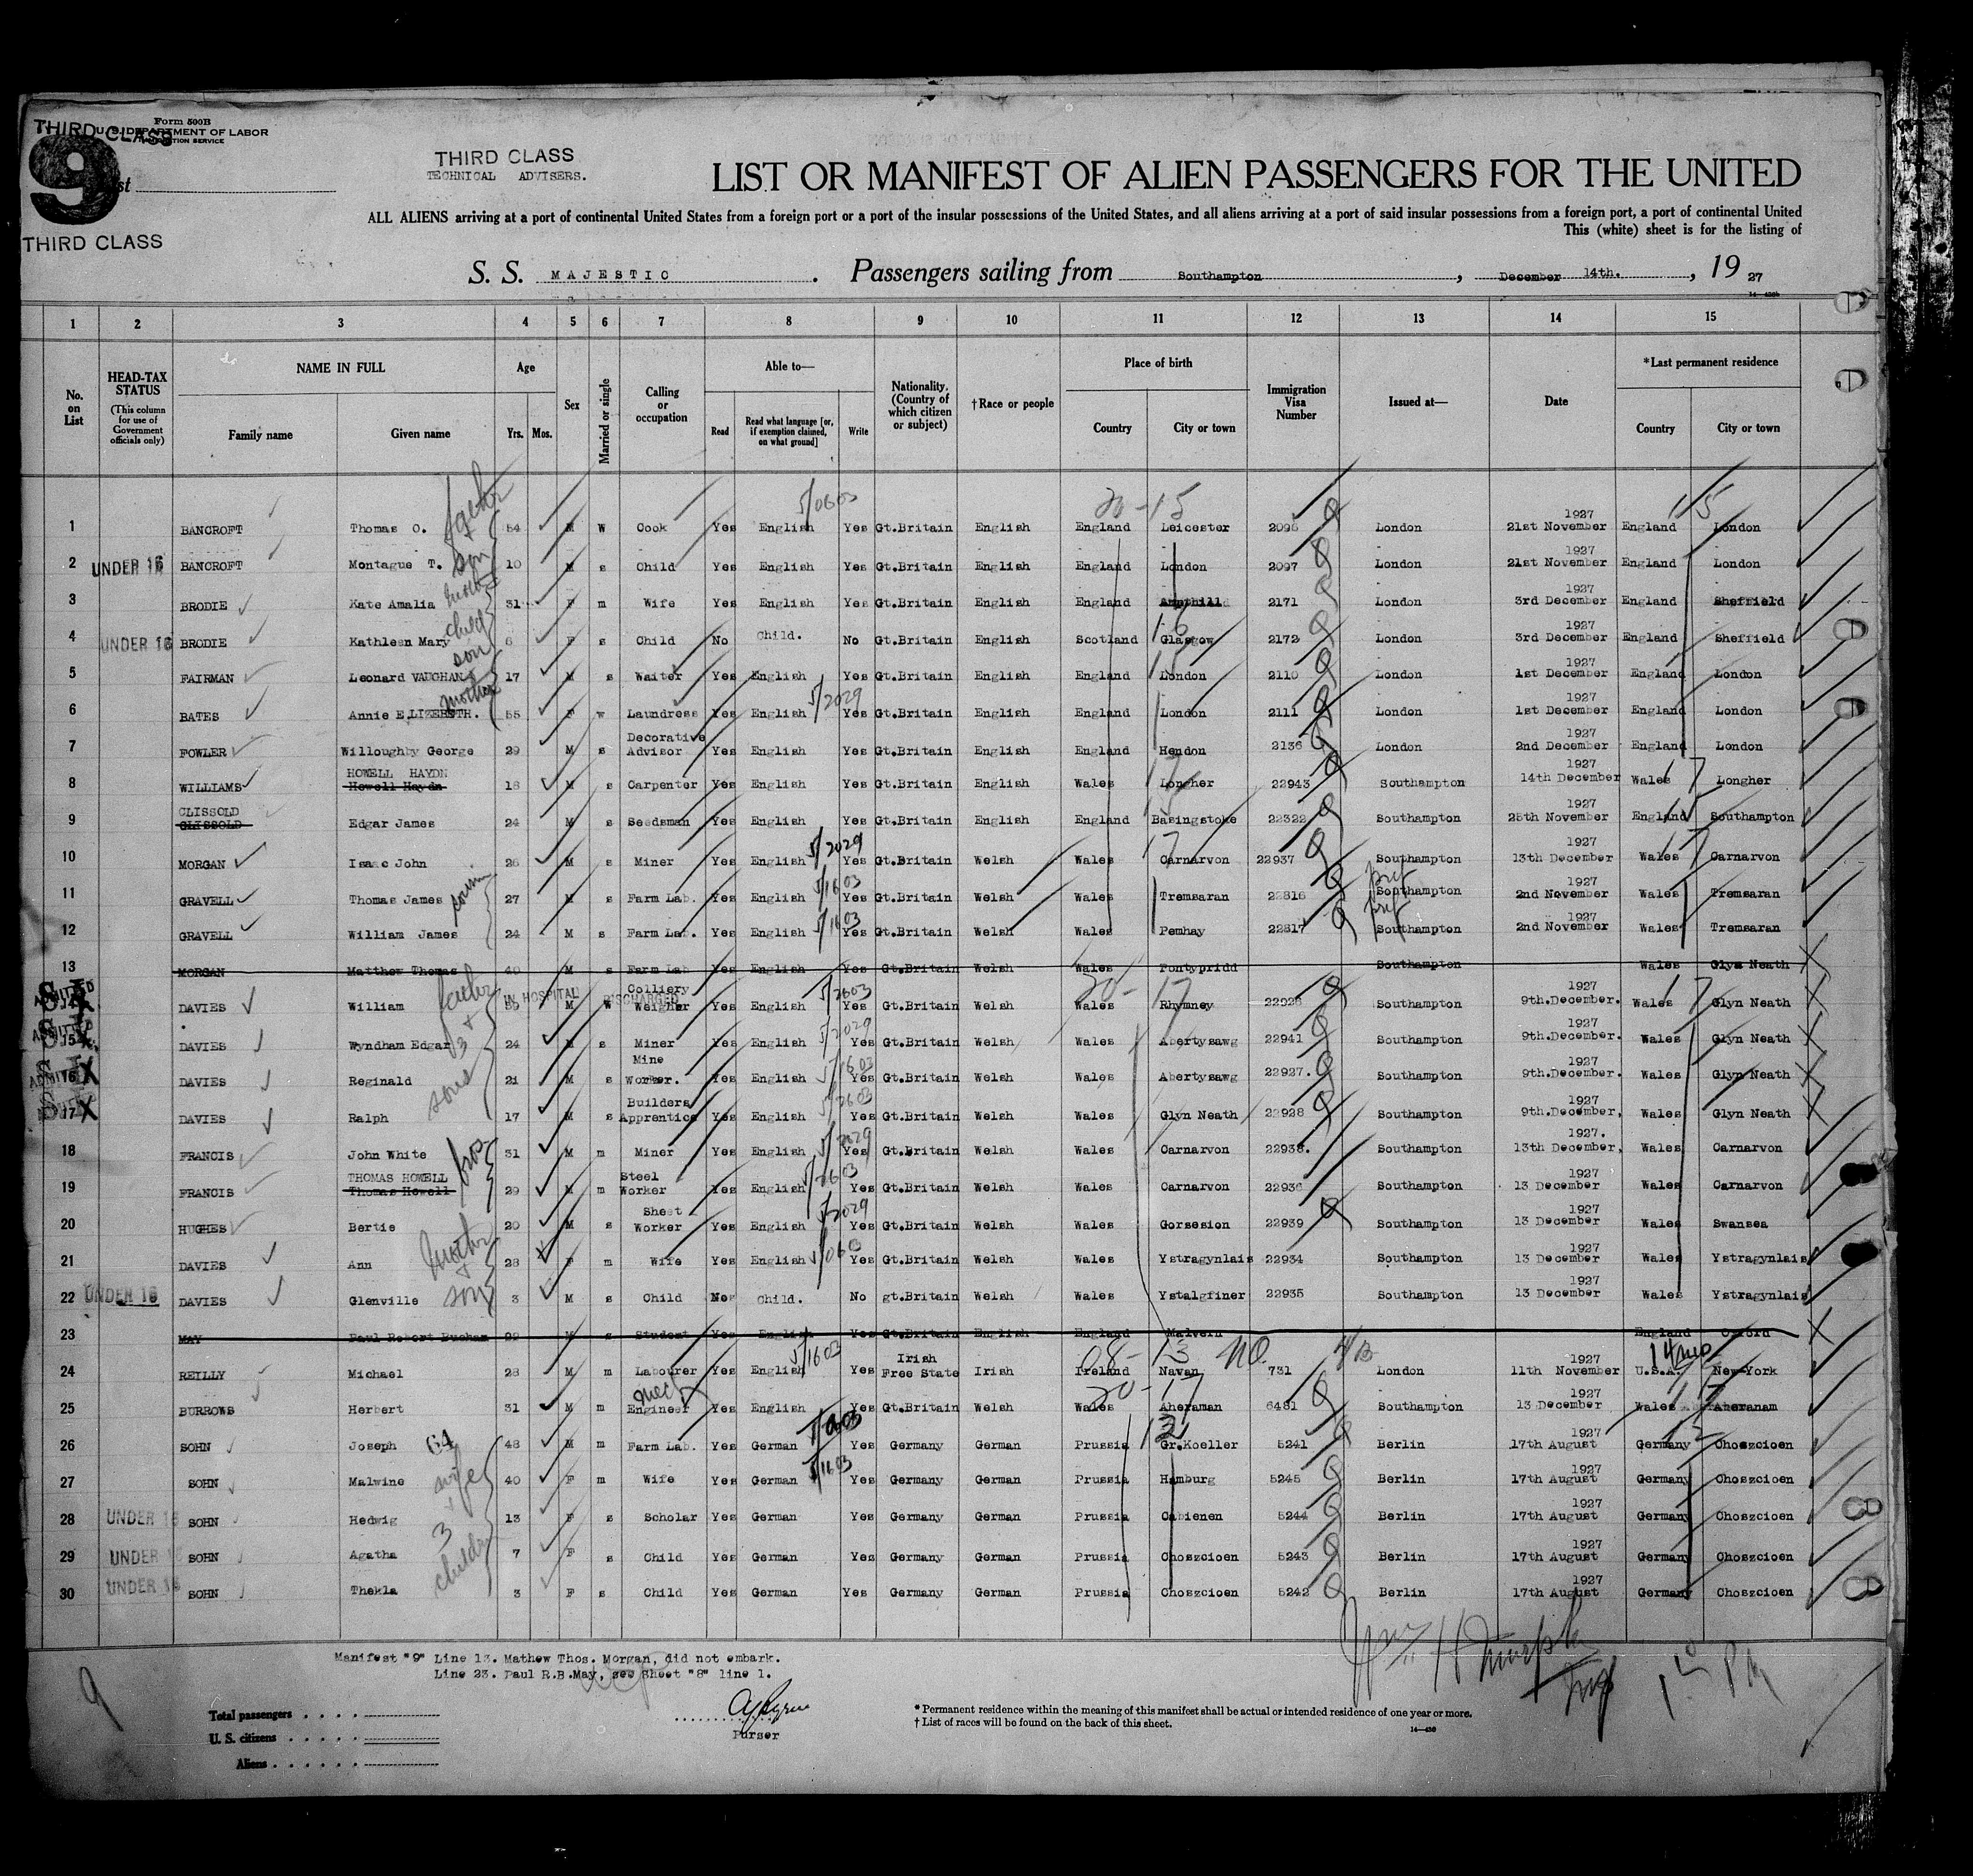 Form 500B
THIRD CLASS
U. S. DEPARTMENT OF LABOR
IMMIGRATION SERVICE
9
THIRD CLASS
THIRD CLASS
TECHNICAL ADVISERS.
LIST OR MANIFEST OF ALIEN PASSENGERS FOR THE UNITED
ALL ALIENS arriving at a port of continental United States from a foreign port or a port of the insular possessions of the United States, and all aliens arriving at a port of said insular possessions from a foreign port, a port of continental United
This (white) sheet is for the listing of
S. S. MAJESTIC. Passengers sailing from Southampton, December 14th., 1927
1 2 3 4 5 6 7 8 9 10 11 12 13 14 15
No. on List
HEAD-TAX STATUS (This column for use of Government officials only)
NAME IN FULL Family name Given name
Age Yrs. Mos.
Sex
Married or single
Calling or occupation
Able to— Read Read what language [or, if exemption claimed, on what ground] Write
Nationality. (Country of which citizen or subject)
†Race or people
Place of birth Country City or town
Immigration Visa Number
Issued at—
Date
*Last permanent residence Country City or town
1 BANCROFT Thomas O. father 54 M W Cook Yes English Yes Gt.Britain English England Leicester 2096 London 1927 21st November England London
2 UNDER 16 BANCROFT Montague T. son 10 M s Child Yes English Yes Gt.Britain English England London 2097 London 1927 21st November England London
3 BRODIE Kate Amalia mother 31 F m Wife Yes English Yes Gt.Britain English England Ampthill 2171 London 1927 3rd December England Sheffield
4 UNDER 16 BRODIE Kathleen Mary child 6 F s Child No Child. No Gt.Britain English Scotland Glasgow 2172 London 1927 3rd December England Sheffield
5 FAIRMAN Leonard VAUGHAN son 17 M s Waiter Yes English Yes Gt.Britain English England London 2110 London 1927 1st December England London
6 BATES Annie ELIZEBETH. mother 55 F w Laundress Yes English 5/2029 Yes Gt.Britain English England London 2111 London 1927 1st December England London
7 FOWLER Willoughby George 29 M s Decorative Advisor Yes English Yes Gt.Britain English England Hendon 2136 London 1927 2nd December England London
8 WILLIAMS HOWELL HAYDN Howell Haydn 18 M s Carpenter Yes English Yes Gt.Britain English Wales Longher 22943 Southampton 1927 14th December Wales Longher
9 CLISSOLD CLISSOLD Edgar James 24 M s Seedsman Yes English Yes Gt.Britain English England Basingstoke 22322 Southampton 1927 25th November England Southampton
10 MORGAN Isaac John 26 M s Miner Yes English 5/2029 Yes Gt.Britain Welsh Wales Carnarvon 22937 Southampton 1927 13th December Wales Carnarvon
11 GRAVELL Thomas James 27 M s Farm Lab. Yes English 5/1603 Yes Gt.Britain Welsh Wales Tremsaran 22816 Southampton 1927 2nd November Wales Tremsaran
12 GRAVELL William James 24 M s Farm Lab. Yes English 5/1603 Yes Gt.Britain Welsh Wales Pemhay 22817 Southampton 1927 2nd November Wales Tremsaran
13 MORGAN Matthew Thomas 40 M s Farm Lab Yes English Yes Gt.Britain Welsh Wales Pontypridd Southampton Wales Glyn Neath
ADMITTED 14 DAVIES William father IN HOSPITAL DISCHARGED M W Colliery Weigher Yes English Yes Gt.Britain Welsh Wales Rhymney 22926 Southampton 1927 9th.December. Wales Glyn Neath
ADMITTED 15 DAVIES Wyndham Edgar + 3 24 M s Miner Yes English 5/2029 Yes Gt.Britain Welsh Wales Abertysawg 22941 Southampton 1927 9th.December. Wales Glyn Neath
ADMITTED 16 DAVIES Reginald sons 21 M s Mine Worker. Yes English 5/1603 Yes Gt.Britain Welsh Wales Abertysawg 22927. Southampton 1927 9th.December. Wales Glyn Neath
17 DAVIES Ralph 17 M s Builders Apprentice Yes English Yes Gt.Britain Welsh Wales Glyn Neath 22928 Southampton 1927 9th.December, Wales Glyn Neath
18 FRANCIS John White bros 31 M m Miner Yes English 5/2029 Yes Gt.Britain Welsh Wales Carnarvon 22938. Southampton 1927. 13th December, Wales Carnarvon
19 FRANCIS THOMAS HOWELL Thomas Howell 29 M m Steel Worker Yes English Yes Gt.Britain Welsh Wales Carnarvon 22936 Southampton 1927 13 December Wales Carnarvon
20 HUGHES Bertie 20 M s Sheet Worker Yes English 5/2029 Yes Gt.Britain Welsh Wales Gorsesion 22939 Southampton 1927 13 December Wales Swansea
21 DAVIES Ann mother 28 F m Wife Yes English Yes Gt.Britain Welsh Wales Ystragynlais 22934 Southampton 1927 13 December Wales Ystragynlais
22 UNDER 16 DAVIES Glenville son 3 M s Child No Child. No gt.Britain Welsh Wales Ystalgfiner 22935 Southampton 1927 13 December Wales Ystragynlais
23 MAY Paul Robert Bucham 29 M s Student Yes English Yes Gt.Britain English England Malvern England Oxford
24 REILLY Michael 28 M m Labourer Yes English 5/1603 Yes Irish Free State Irish Ireland Navan NO. 731 London 1927 11th November U.S.A. New-York
25 BURROWS Herbert 31 M m Engineer Yes English Yes Gt.Britain Welsh Wales Aheraman 6481 Southampton 1927 13 December Wales Aheranam
26 SOHN Joseph 64 48 M m Farm Lab. Yes German Yes Germany German Prussia Gr.Koeller 5241 Berlin 1927 17th August Germany Choszcioen
27 SOHN Malwine wife 40 F m Wife Yes German 5/1603 Yes Germany German Prussia Hamburg 5245 Berlin 1927 17th August Germany Choszcioen
28 UNDER 16 SOHN Hedwig + 3 13 F s Scholar Yes German Yes Germany German Prussia Cabienen 5244 Berlin 1927 17th August Germany Choszcioen
29 UNDER 16 SOHN Agatha childn 7 F s Child Yes German Yes Germany German Prussia Choszcioen 5243 Berlin 1927 17th August Germany Choszcioen
30 UNDER 16 SOHN Thekla 3 F s Child Yes German Yes Germany German Prussia Choszcioen 5242 Berlin 1927 17th August Germany Choszcioen
Manifest "9" Line 13. Mathew Thos. Morgan, did not embark.
Line 23. Paul R.B.May, see Sheet "8" line 1.
9
Total passengers
U. S. citizens
Aliens
Purser
* Permanent residence within the meaning of this manifest shall be actual or intended residence of one year or more.
† List of races will be found on the back of this sheet.
14—430